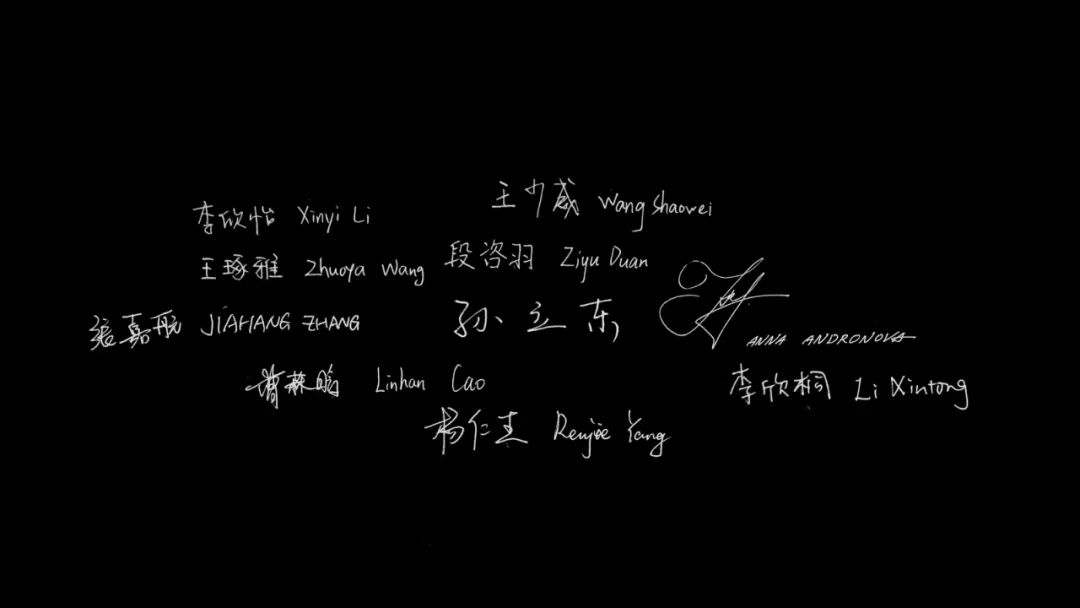 王少威 Wang Shaowei
李欣怡 Xinyi Li
王琢雅 Zhuoya Wang
段咨羽 Ziyu Duan
张嘉航 JIAHANG ZHANG
孙立东
ANNA ANDRONOVA
Linhan Cao
李欣桐 Li Xintong
杨仁杰 Renjie Yang